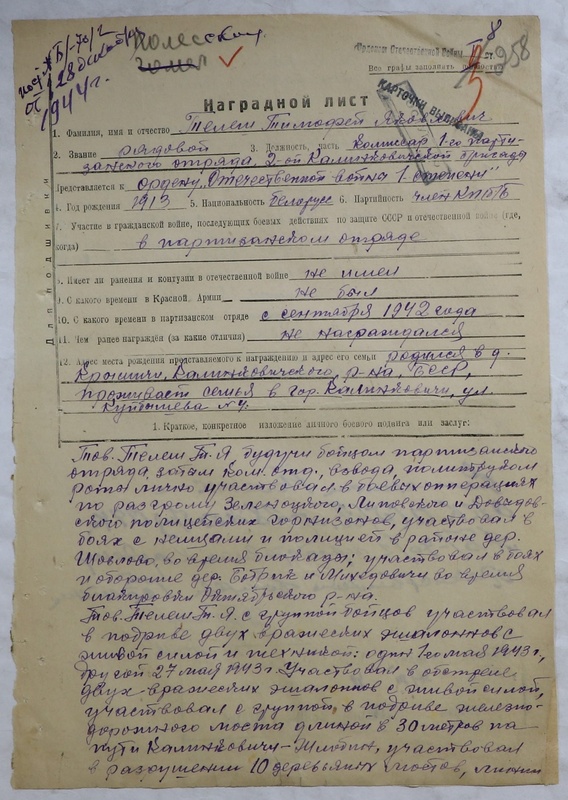 Полесской
Гомел
8
958
посл № Б/-70/2
от 28 декабря
1944 г.
Орденом Отечественной Войны II ст.
Все графы заполнять полностью
КАРТОЧКИ ВЫПИСАНЫ
Наградной лист
1. Фамилия, имя и отчество Телеш Тимофей Яковлевич
2. Звание рядовой 3. Должность, часть комиссар 1-го парти-
занского отряда, 2-ой Калинковичской бригады
Представляется к ордену "Отечественной войны 1 степени"
4. Год рождения 1913 5. Национальность белорус 6. Партийность член КП(б)Б
7. Участие в гражданской войне, последующих боевых действиях по защите СССР и отечественной войне (где,
когда) в партизанском отряде
8. Имеет ли ранения и контузии в отечественной войне не имел
9. С какого времени в Красной Армии не был
10. С какого времени в партизанском отряде с сентября 1942 года
11. Чем ранее награждён (за какие отличия) не награждался
12. Адрес места рождения представляемого к награждению и адрес его семьи родился в д.
Крошичи, Калинковичского, р-на, БССР,
проживает семья в гор. Калинковичи, ул.
Куйбышева № 4.
Для подшивки
1. Краткое, конкретное изложение личного боевого подвига или заслуг:
Тов. Телеш Т.Я. будучи бойцом партизанского
отряда, затем ком. отд., взвода, политруком
роты лично участвовал в боевых операциях
по разгрому Зеленоцкого, Липовского и Давыдов-
ского полицейских гарнизонов, участвовал в
боях с немцами и полицией в районе дер.
во время блокады; участвовал в боях
и обороне дер. Бобрик и Михедовичи во время
блакировки Октябрьского р-на.
Тов. Телеш Т.Я. с группой бойцов участвовал
в подриве двух вражеских эшалонов с
живой силой и техникой: один 1-го мая 1943 г.,
другой 27 мая 1943 г. Участвовал в обстреле
двух вражеских эшалонов с живой силой,
участвовал с группой, в подриве железно-
дорожного моста длиной в 30 метров на
пути Калинковичи-Жлобин, участвовал
в разрушении 10 деревьяных мостов,